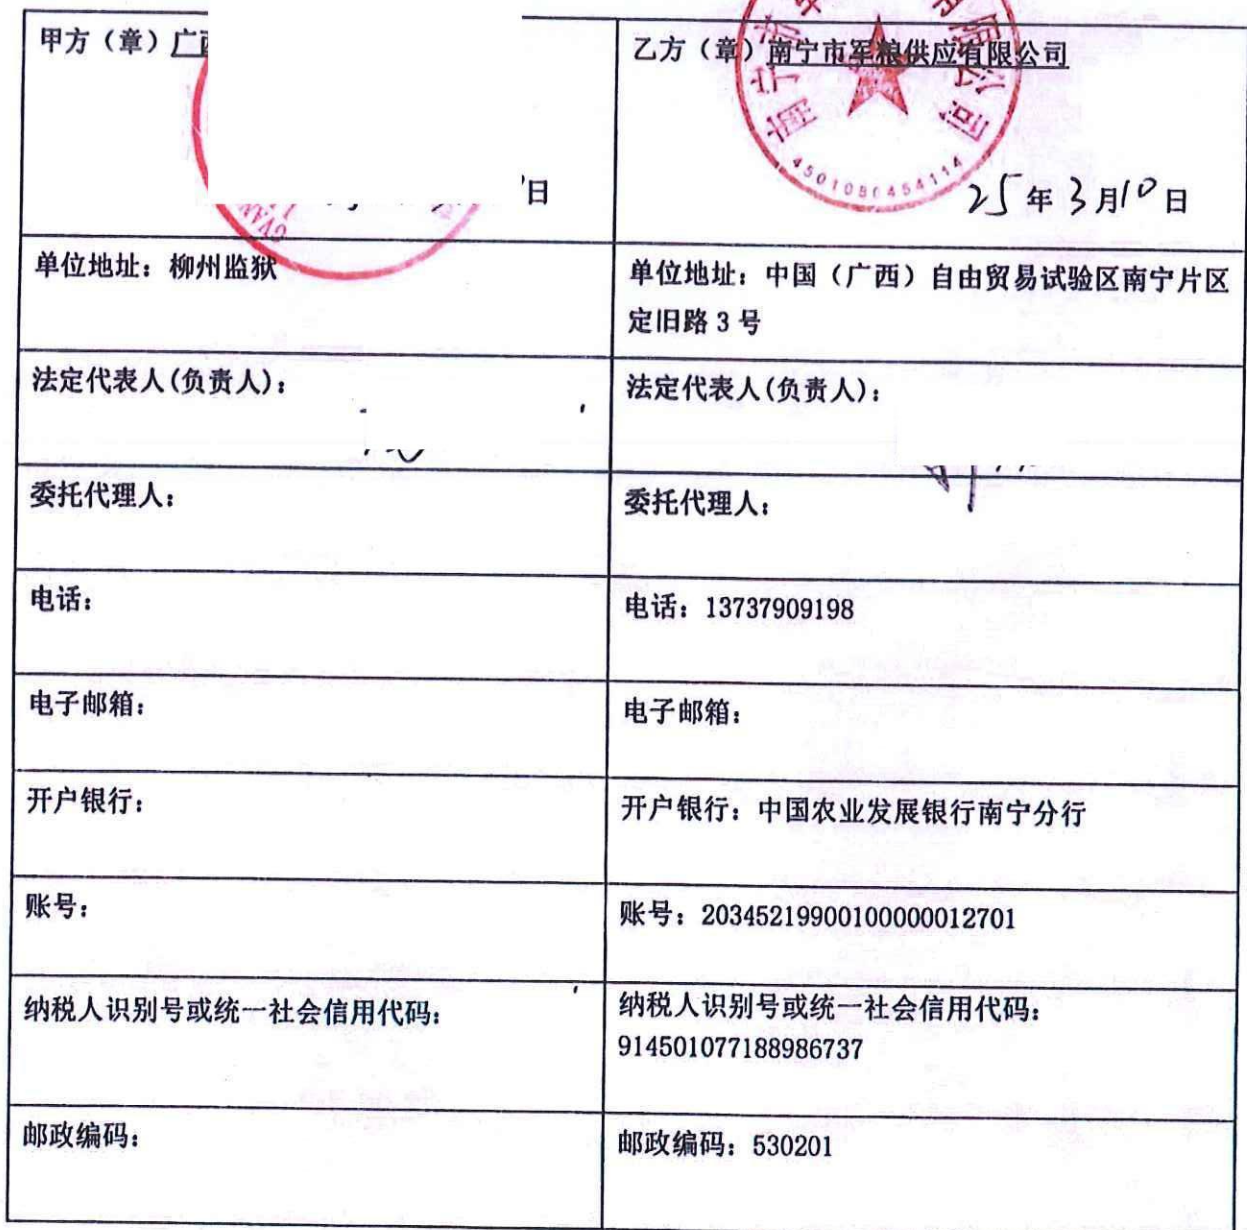 甲方（章）广西
日
乙方（章）南宁市军粮供应有限公司
南宁市军 有限公司
4501080454114
25年3月10日
单位地址：柳州监狱
单位地址：中国（广西）自由贸易试验区南宁片区
定旧路 3 号
法定代表人(负责人)：
法定代表人(负责人)：
委托代理人：
委托代理人：
电话：
电话：13737909198
电子邮箱：
电子邮箱：
开户银行：
开户银行：中国农业发展银行南宁分行
账号：
账号：20345219900100000012701
纳税人识别号或统一社会信用代码：
纳税人识别号或统一社会信用代码：
914501077188986737
邮政编码：
邮政编码：530201